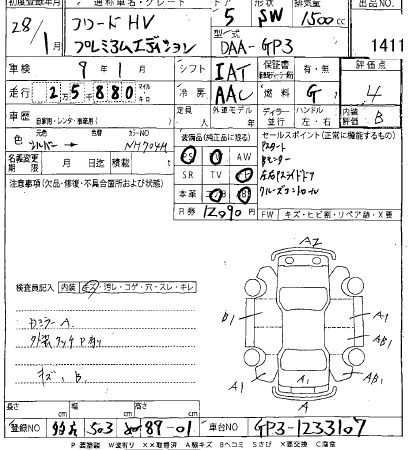 初度登録年月 通称車名・グレード ドア 形状 排気量 出品NO
28/1月 フリードHV 5 SW 1500cc
プレミアムエディション 型/式 DAA-GP3 1411
車検 9年1月 シフト IAT 保証書 有・無 評価点
走行 25,880 マイル キロ 冷房 AAC 燃料 G 4
車歴 自家用・レンタ・港車用( ) 定員 人 外車モデル 年 ディーラー 並行 ハンドル 左・右 内装評価 B
色 元色 シルバー 替色 カラーNO NH704M
装備品(純正品に限る) セールスポイント(正常に機能するもの)
名義変更期限 月 日迄 積載 t
PS PW AW Pスタート
SR TV Bモニター
本革 ナビ AB 左右Pスライドドア
R券 12,090 クルーズコントロール
FW キズ・ヒビ割・リペア跡・X要
注意事項(欠品・修復・不具合箇所および改造)
検査員記入 内装 キズ・汚レ・コゲ・穴・スレ・キレ
DミラーA
外装タッチP有り
キズ、B
A2
B1 A1
AB1
A1 A1 AB1
A
長さ cm 幅 cm 高さ cm
登録NO 503 89-01 車台NO GP3-1233107
P 要塗装 W波有り ××取替済 A線キズ Bヘコミ Sさび ×要交換 C腐食